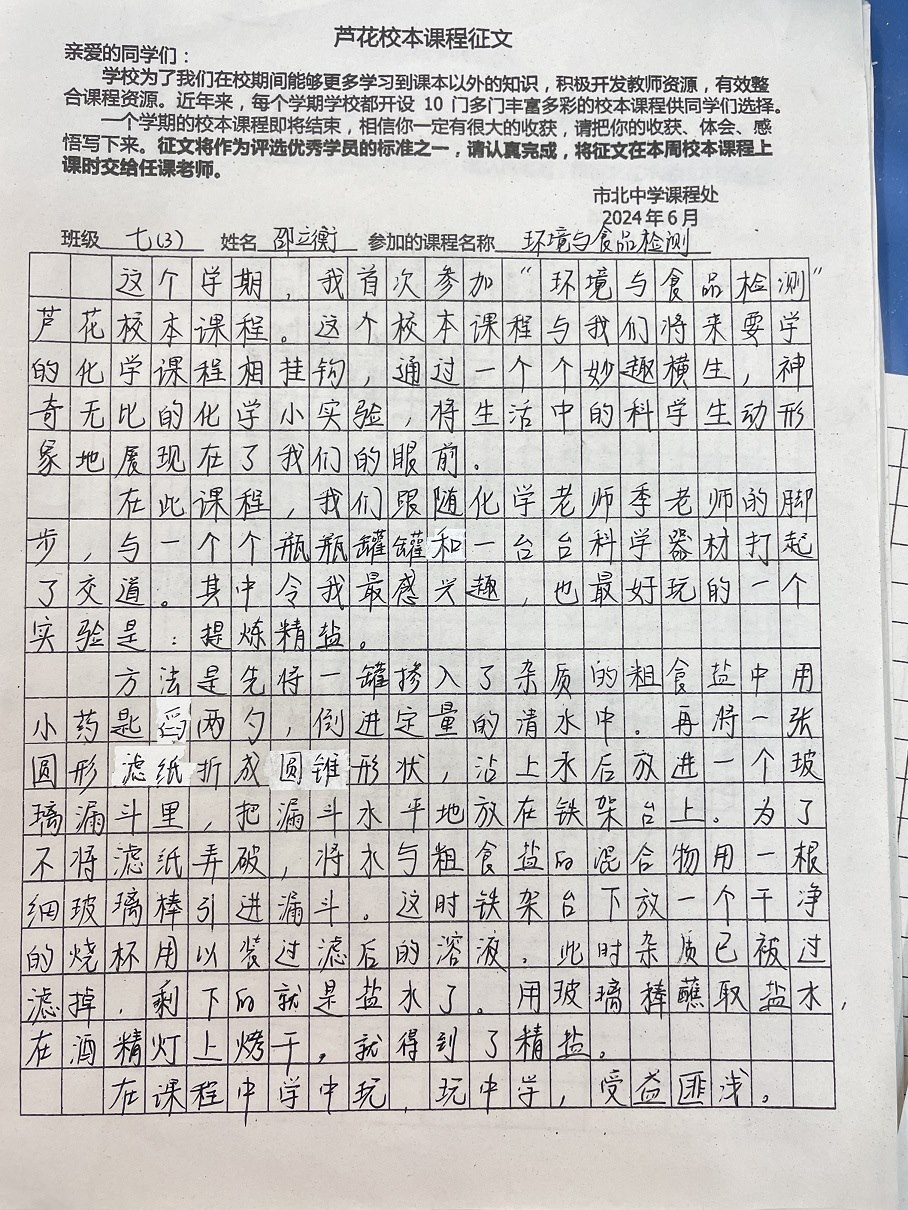 芦花校本课程征文
亲爱的同学们：
学校为了我们在校期间能够更多学习到课本以外的知识，积极开发教师资源，有效整
合课程资源。近年来，每个学期学校都开设 10 门多门丰富多彩的校本课程供同学们选择。
一个学期的校本课程即将结束，相信你一定有很大的收获，请把你的收获、体会、感
悟写下来。征文将作为评选优秀学员的标准之一，请认真完成，将征文在本周校本课程上
课时交给任课老师。
市北中学课程处
2024 年 6 月
班级 七(3) 姓名 邵立衡 参加的课程名称 环境与食品检测
这个学期，我首次参加“环境与食品检测”
芦花校本课程。这个校本课程与我们将来要学
的化学课程相挂钩，通过一个个妙趣横生，神
奇无比的化学小实验，将生活中的科学生动形
象地展现在了我们的眼前。
在此课程，我们跟随化学老师季老师的脚
步，与一个个瓶瓶罐罐和一台台科学器材打起
了交道。其中令我最感兴趣，也最好玩的一个
实验是：提炼精盐。
方法是先将一罐掺入了杂质的粗食盐中用
小药匙舀两勺，倒进定量的清水中。再将一张
圆形滤纸折成圆锥形状，沾上水后放进一个玻
璃漏斗里，把漏斗水平地放在铁架台上。为了
不将滤纸弄破，将水与粗食盐的混合物用一根
细玻璃棒引进漏斗。这时铁架台下放一个干净
的烧杯用以装过滤后的溶液，此时杂质已被过
滤掉，剩下的就是盐水了。用玻璃棒蘸取盐水，
在酒精灯上烤干，就得到了精盐。
在课程中学中玩，玩中学，受益匪浅。